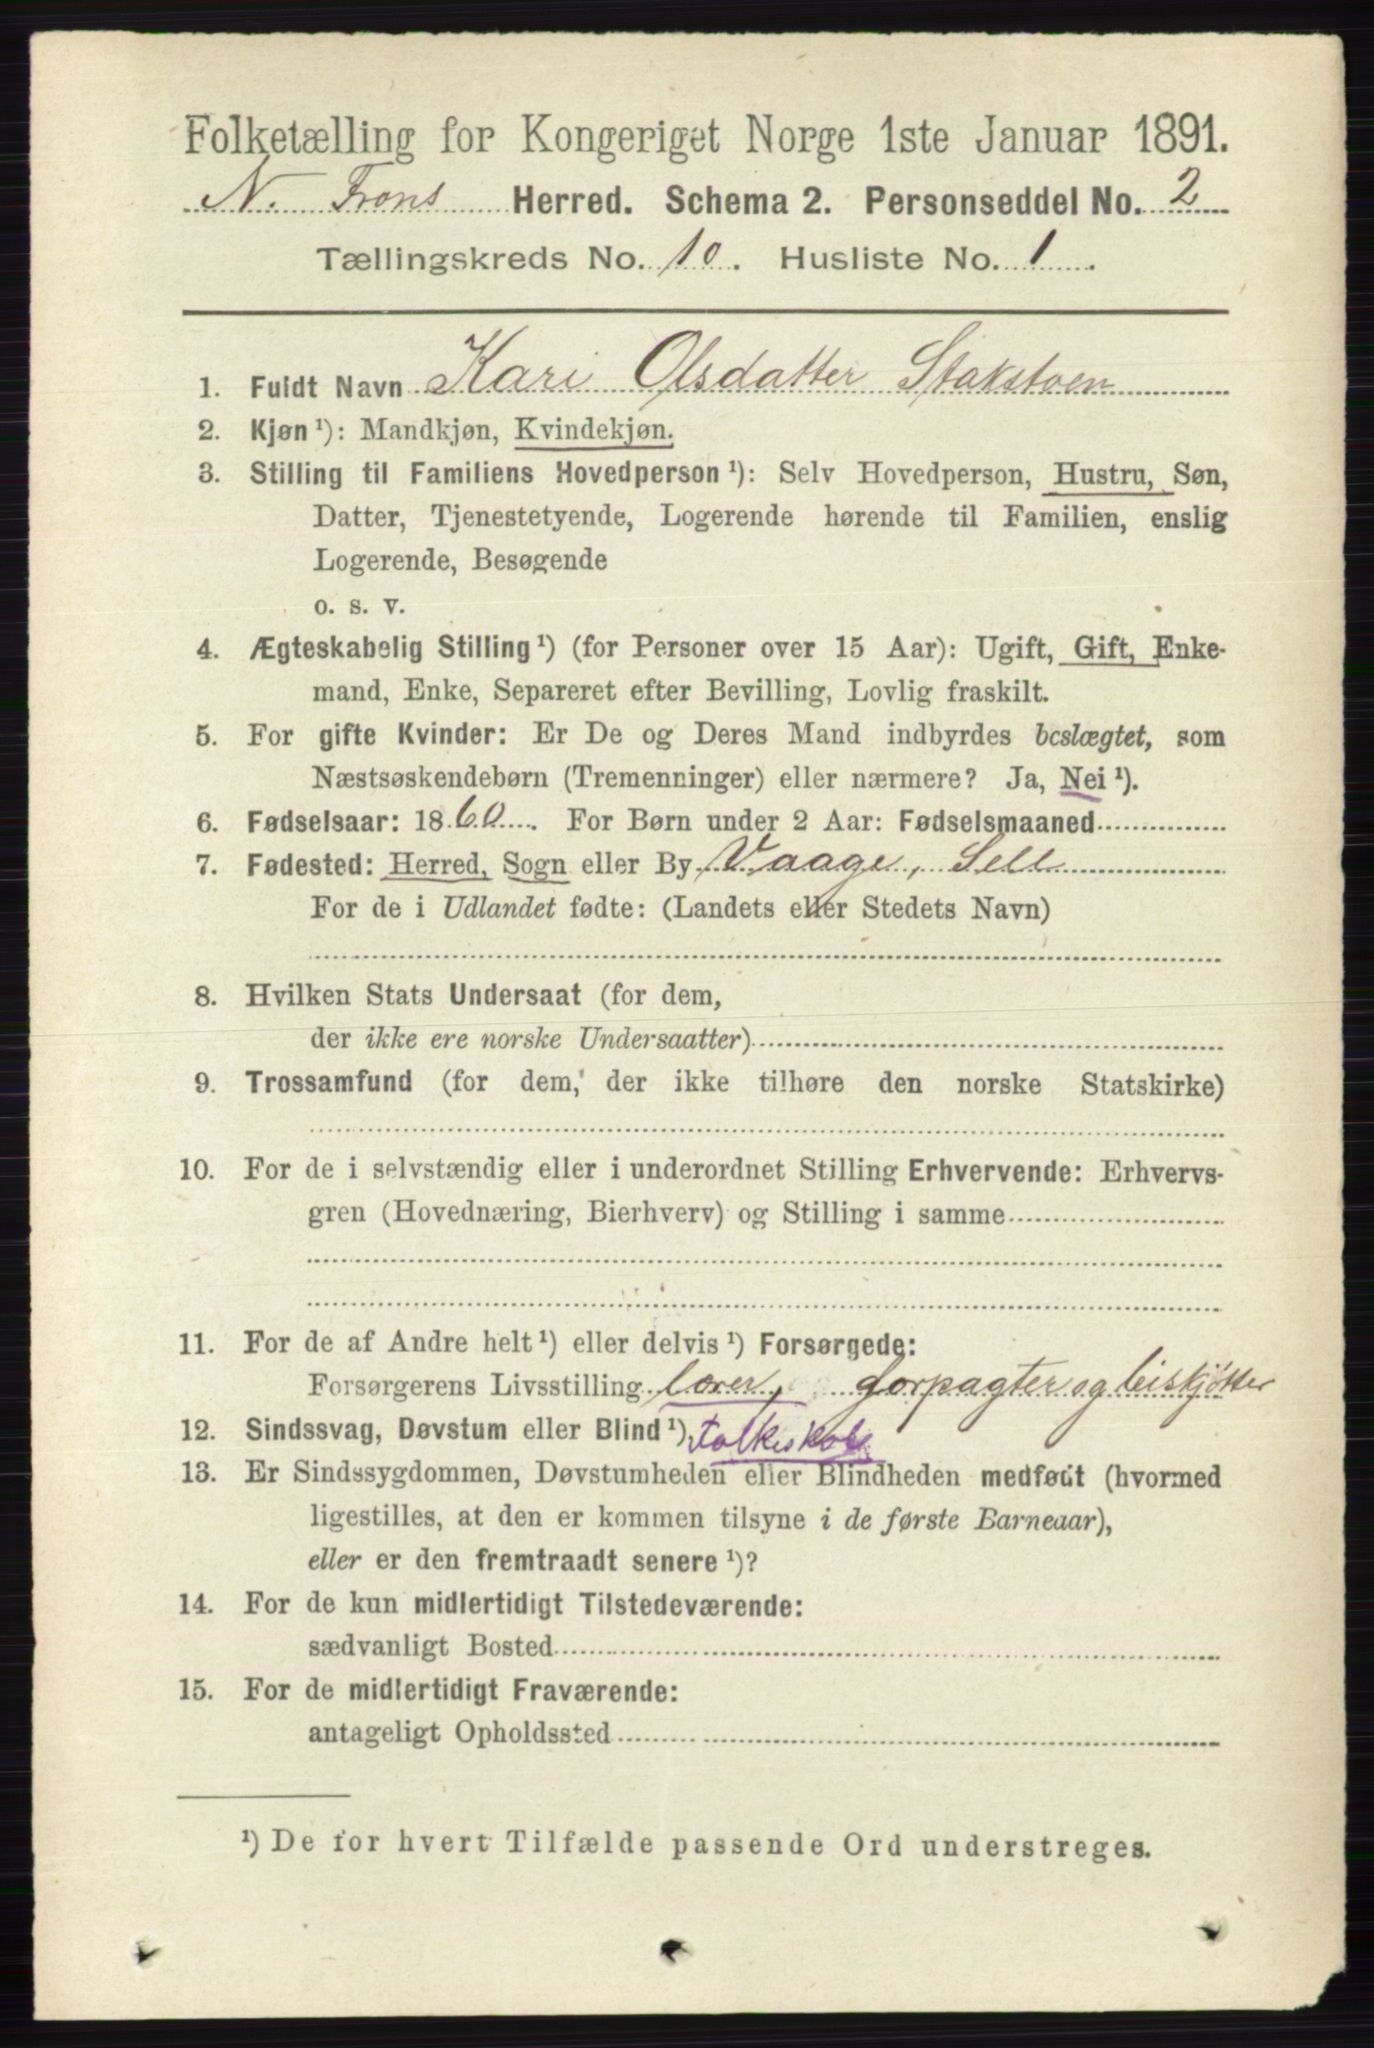 Folketælling for Kongeriget Norge 1ste Januar 1891.
N. Frons Herred. Schema 2. Personseddel No. 2
Tællingskreds No. 10. Husliste No. 1.
1. Fuldt Navn Kari Olsdatter Stakstoen
2. Kjøn¹): Mandkjøn, Kvindekjøn.
3. Stilling til Familiens Hovedperson¹): Selv Hovedperson, Hustru, Søn,
Datter, Tjenestetyende, Logerende hørende til Familien, enslig
Logerende, Besøgende
o. s. v.
4. Ægteskabelig Stilling¹) (for Personer over 15 Aar): Ugift, Gift, Enke-
mand, Enke, Separeret efter Bevilling, Lovlig fraskilt.
5. For gifte Kvinder: Er De og Deres Mand indbyrdes beslægtet, som
Næstsøskendebørn (Tremenninger) eller nærmere? Ja, Nei¹).
6. Fødselsaar: 1860. For Børn under 2 Aar: Fødselsmaaned
7. Fødested: Herred, Sogn eller By Vaage, Sell
For de i Udlandet fødte: (Landets eller Stedets Navn)
8. Hvilken Stats Undersaat (for dem,
der ikke ere norske Undersaatter)
9. Trossamfund (for dem, der ikke tilhøre den norske Statskirke)
10. For de i selvstændig eller i underordnet Stilling Erhvervende: Erhvervs-
gren (Hovednæring, Bierhverv) og Stilling i samme
11. For de af Andre helt¹) eller delvis¹) Forsørgede:
Forsørgerens Livsstilling lærer, forpagter og leiskjötter
12. Sindssvag, Døvstum eller Blind¹) Folkeskole
13. Er Sindssygdommen, Døvstumheden eller Blindheden medfødt (hvormed
ligestilles, at den er kommen tilsyne i de første Barneaar),
eller er den fremtraadt senere¹)?
14. For de kun midlertidigt Tilstedeværende:
sædvanligt Bosted
15. For de midlertidigt Fraværende:
antageligt Opholdssted
¹) De for hvert Tilfælde passende Ord understreges.